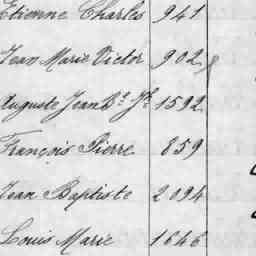 Etienne Charles 941
Jean Marie Victor 902
Auguste Jean Bte Jh 1592
François Pierre 859
Jean Baptiste 2094
Louis Marie 1646